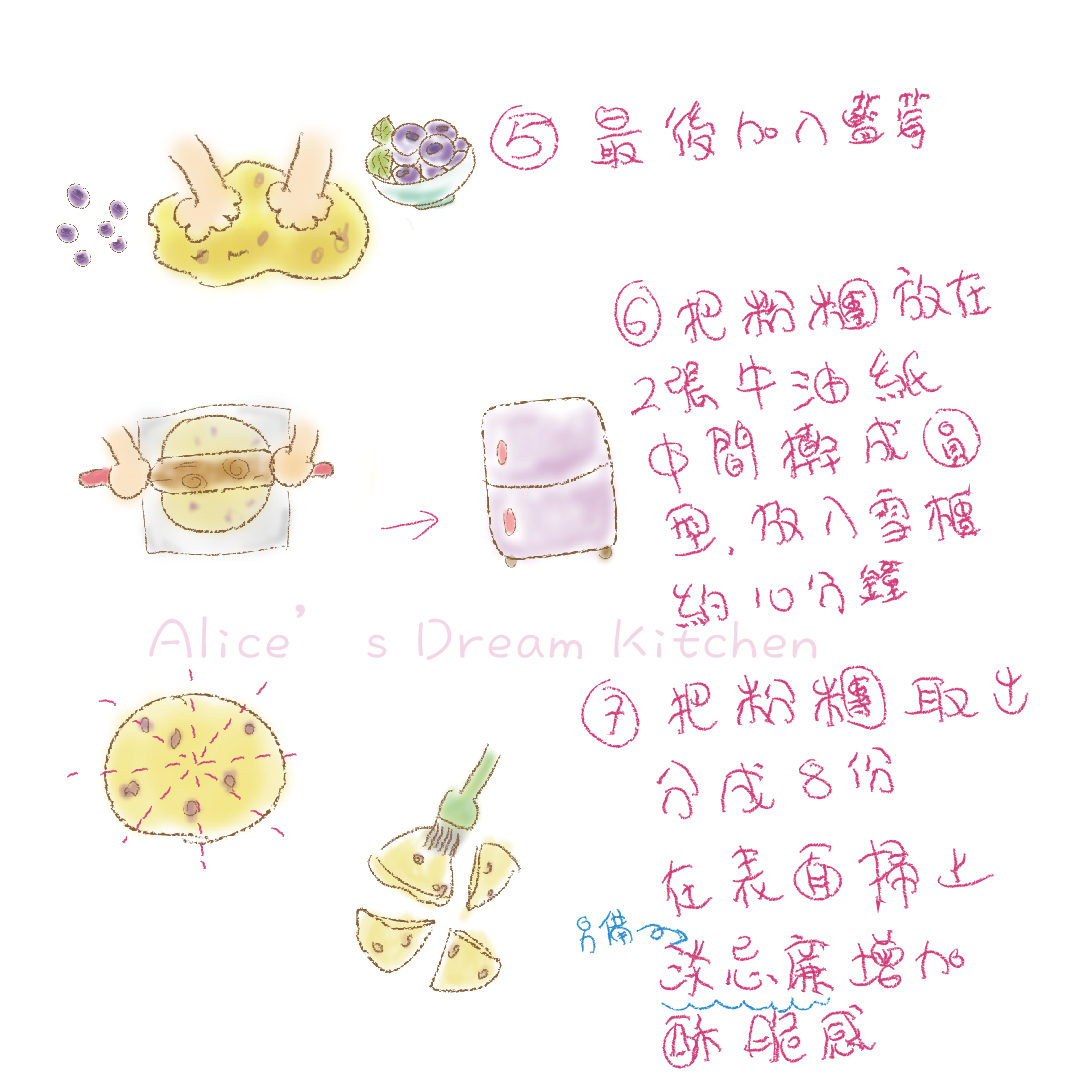 ⑤ 最後加入藍莓
⑥ 把粉糰放在
2張牛油紙
中間擀成圓
型，放入雪櫃
約10分鐘
Alice's Dream Kitchen
⑦ 把粉糰取出
分成8份
在表面掃上
另備
淡忌廉增加
酥脆感